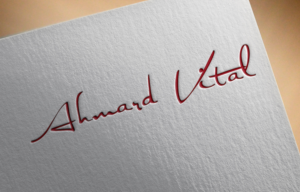 Ahmard Vital